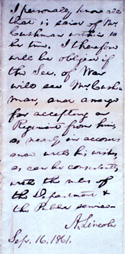 I personally know all
that is said of Mr.
Cushman within to
be true. I therefore
will be obliged if
the Sec. of War
will see Mr. Cush-
man, and arrange
for accepting a
Regiment from him,
as nearly in accord-
ance with his wishes
as can be consistently
with the rules of
the Department &
the Public service
A. Lincoln
Sep. 16. 1861.